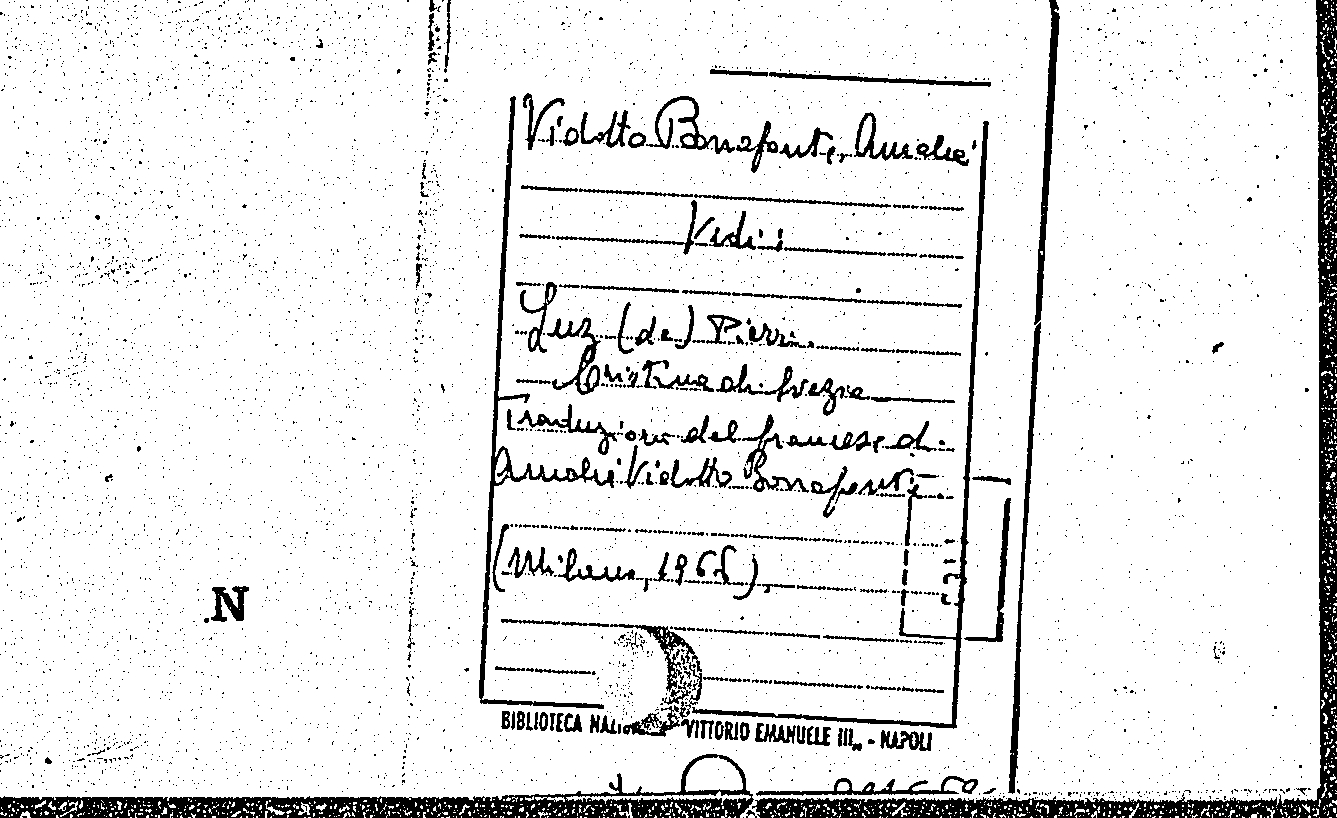 Vidotto Bonafonte, Amalia
Vedi:
Luz (de) Pierre.
Cristina di Svezia
Traduzione del francese di
Amalia Vidotto Bonafonte.
(Milano, 1966),
N
BIBLIOTECA VITTORIO EMANUELE III„ - NAPOLI